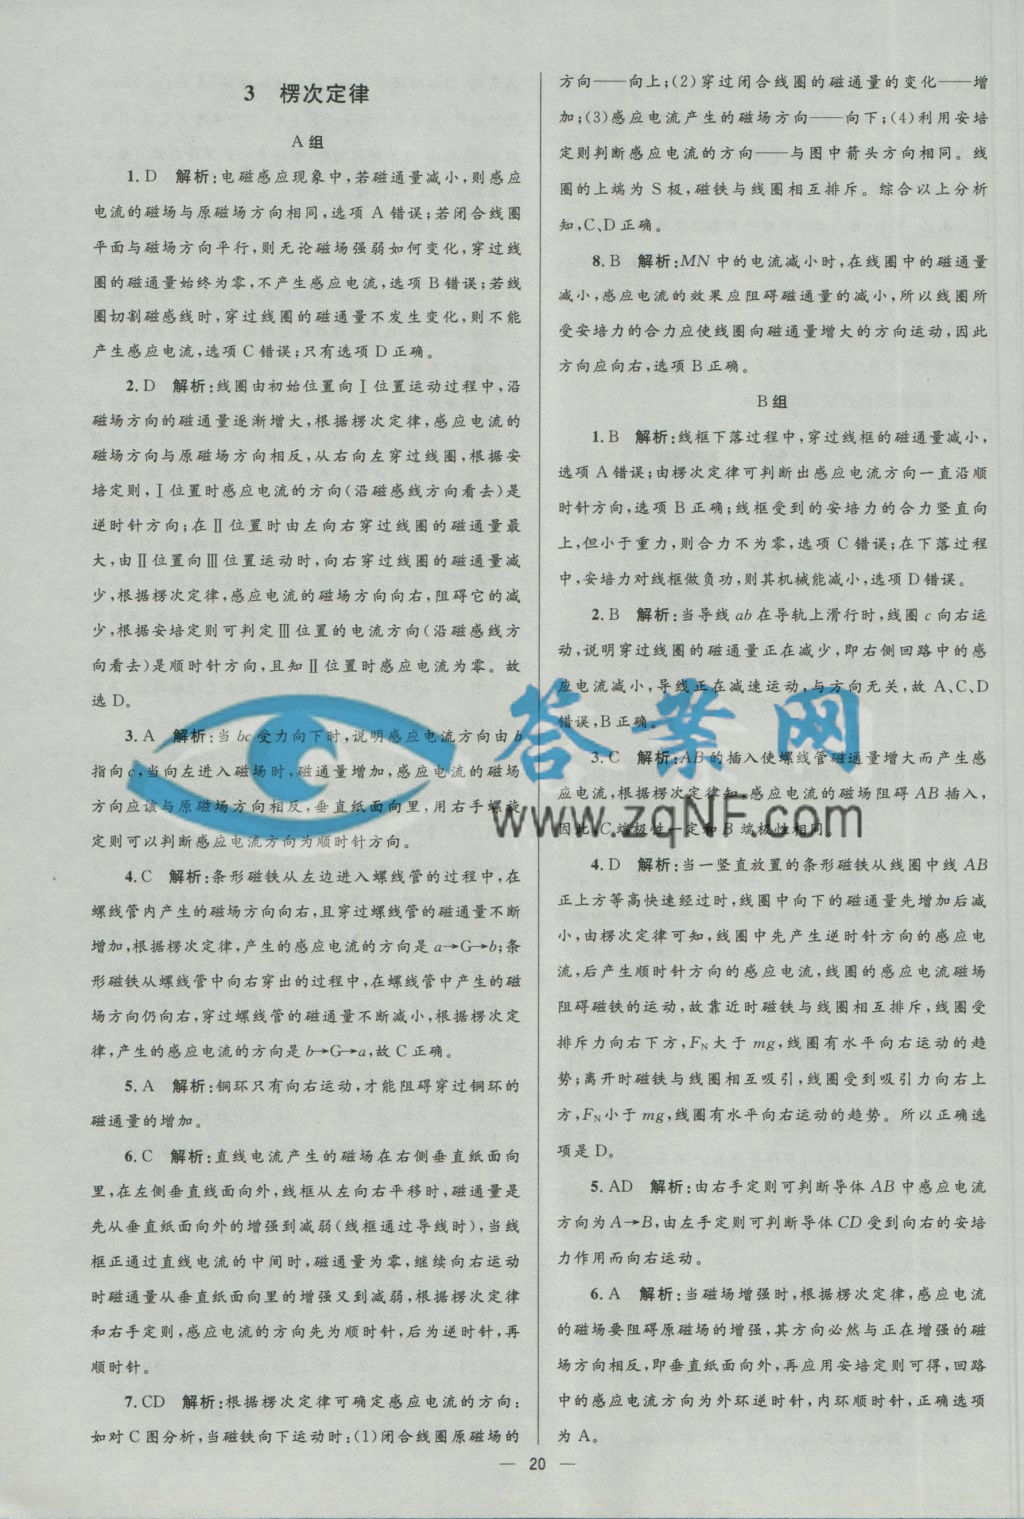 3 楞次定律
A组
1. D 解析:电磁感应现象中,若磁通量减小,则感应
电流的磁场与原磁场方向相同,选项A错误;若闭合线圈
平面与磁场方向平行,则无论磁场强弱如何变化,穿过线
圈的磁通量始终为零,不产生感应电流,选项B错误;若线
圈切割磁感线时,穿过线圈的磁通量不发生变化,则不能
产生感应电流,选项C错误;只有选项D正确。
2. D 解析:线圈由初始位置向Ⅰ位置运动过程中,沿
磁场方向的磁通量逐渐增大,根据楞次定律,感应电流的
磁场方向与原磁场方向相反,从右向左穿过线圈,根据安
培定则,Ⅰ位置时感应电流的方向(沿磁感线方向看去)是
逆时针方向;在Ⅱ位置时由左向右穿过线圈的磁通量最
大,由Ⅱ位置向Ⅲ位置运动时,向右穿过线圈的磁通量减
少,根据楞次定律,感应电流的磁场方向向右,阻碍它的减
少,根据安培定则可判定Ⅲ位置的电流方向(沿磁感线方
向看去)是顺时针方向,且知Ⅱ位置时感应电流为零。故
选D。
3. A 解析:当bc受力向下时,说明感应电流方向由b
指向c,当向左进入磁场时,磁通量增加,感应电流的磁场
方向应该与原磁场方向相反,垂直纸面向里,用右手螺旋
定则可以判断感应电流方向为顺时针方向。
4. C 解析:条形磁铁从左边进入螺线管的过程中,在
螺线管内产生的磁场方向向右,且穿过螺线管的磁通量不断
增加,根据楞次定律,产生的感应电流的方向是a→G→b;条
形磁铁从螺线管中向右穿出的过程中,在螺线管中产生的磁
场方向仍向右,穿过螺线管的磁通量不断减小,根据楞次定
律,产生的感应电流的方向是b→G→a,故C正确。
5. A 解析:铜环只有向右运动,才能阻碍穿过铜环的
磁通量的增加。
6. C 解析:直线电流产生的磁场在右侧垂直纸面向
里,在左侧垂直线面向外,线框从左向右平移时,磁通量是
先从垂直纸面向外的增强到减弱(线框通过导线时),当线
框正通过直线电流的中间时,磁通量为零,继续向右运动
时磁通量从垂直纸面向里的增强又到减弱,根据楞次定律
和右手定则,感应电流的方向先为顺时针,后为逆时针,再
顺时针。
7. CD 解析:根据楞次定律可确定感应电流的方向:
如对C图分析,当磁铁向下运动时:(1)闭合线圈原磁场的
方向——向上;(2)穿过闭合线圈的磁通量的变化——增
加;(3)感应电流产生的磁场方向——向下;(4)利用安培
定则判断感应电流的方向——与图中箭头方向相同。线
圈的上端为S极,磁铁与线圈相互排斥。综合以上分析
知,C、D正确。
8. B 解析:MN中的电流减小时,在线圈中的磁通量
减小,感应电流的效果应阻碍磁通量的减小,所以线圈所
受安培力的合力应使线圈向磁通量增大的方向运动,因此
方向应向右,选项B正确。
B组
1. B 解析:线框下落过程中,穿过线框的磁通量减小,
选项A错误;由楞次定律可判断出感应电流方向一直沿顺
时针方向,选项B正确;线框受到的安培力的合力竖直向
上,但小于重力,则合力不为零,选项C错误;在下落过程
中,安培力对线框做负功,则其机械能减小,选项D错误。
2. B 解析:当导线ab在导轨上滑行时,线圈c向右运
动,说明穿过线圈的磁通量正在减少,即右侧回路中的感
应电流减小,导线正在减速运动,与方向无关,故A、C、D
错误,B正确。
3. C 解析:AB的插入使螺线管磁通量增大而产生感
应电流,根据楞次定律知,感应电流的磁场阻碍AB插入,
因此,C端极性一定和B端极性相同。
4. D 解析:当一竖直放置的条形磁铁从线圈中线AB
正上方等高快速经过时,线圈中向下的磁通量先增加后减
小,由楞次定律可知,线圈中先产生逆时针方向的感应电
流,后产生顺时针方向的感应电流,线圈的感应电流磁场
阻碍磁铁的运动,故靠近时磁铁与线圈相互排斥,线圈受
排斥力向右下方,FN大于mg,线圈有水平向右运动的趋
势;离开时磁铁与线圈相互吸引,线圈受到吸引力向右上
方,FN小于mg,线圈有水平向右运动的趋势。所以正确选
项是D。
5. AD 解析:由右手定则可判断导体AB中感应电流
方向为A→B,由左手定则可判断导体CD受到向右的安培
力作用而向右运动。
6. A 解析:当磁场增强时,根据楞次定律,感应电流
的磁场要阻碍原磁场的增强,其方向必然与正在增强的磁
场方向相反,即垂直纸面向外,再应用安培定则可得,回路
中的感应电流方向为外环逆时针,内环顺时针,正确选项
为A。
答案网
www.zqNF.com
— 20 —